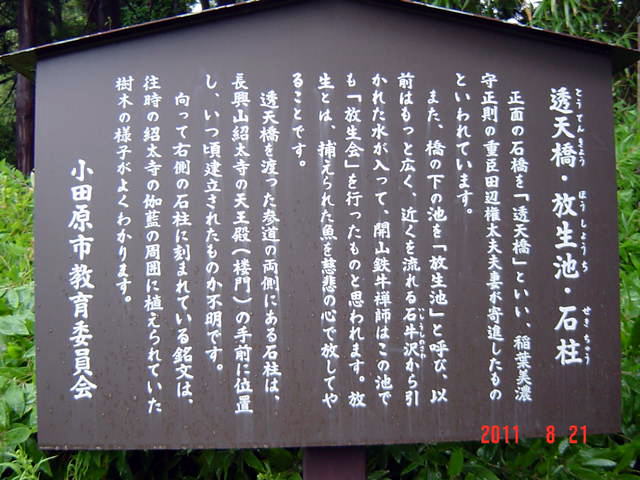 透天橋・放生池・石柱
とうてんきょう
ほうしょうち
せきちゅう
正面の石橋を「透天橋」といい、稲葉美濃
守正則の重臣田辺権太夫夫妻が寄進したもの
といわれています。
また、橋の下の池を「放生池」と呼び、以
前はもっと広く、近くを流れる石牛沢から引
かれた水が入って、開山鉄牛禅師はこの池で
も「放生会」を行ったものと思われます。放
生とは、捕えられた魚を慈悲の心で放してや
ることです。
透天橋を渡った参道の両側にある石柱は、
長興山紹太寺の天王殿(楼門)の手前に位置
し、いつ頃建立されたものか不明です。
向って右側の石柱に刻まれている銘文は、
往時の紹太寺の伽藍の周囲に植えられていた
樹木の様子がよくわかります。
小田原市教育委員会
2011 8 21